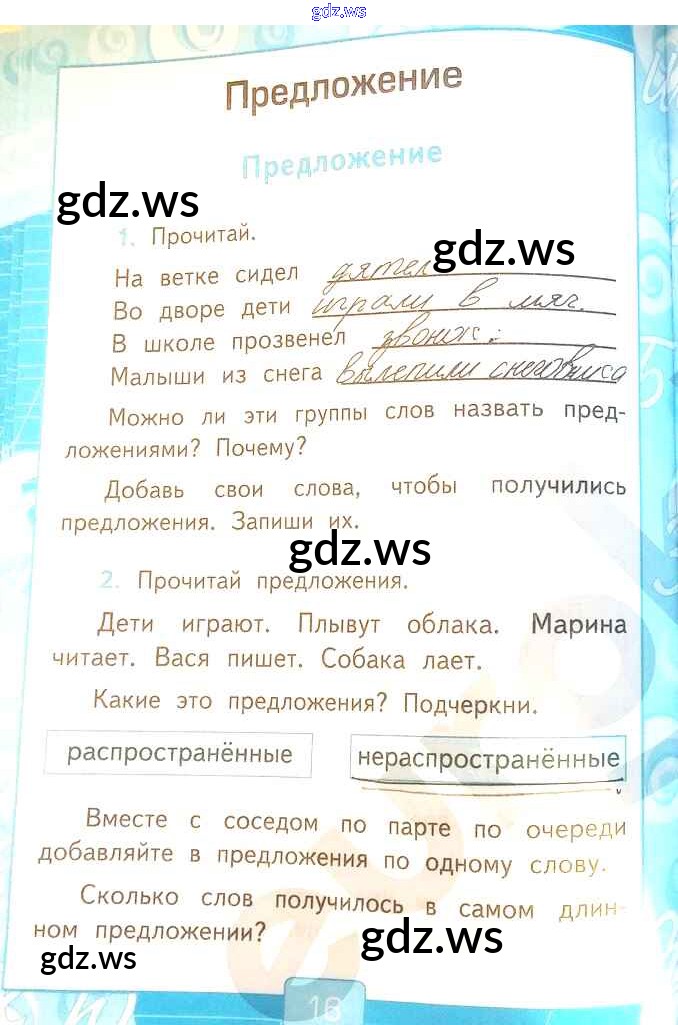 gdz.ws
Предложение
Предложение
gdz.ws
1. Прочитай.
gdz.ws
На ветке сидел дятел
Во дворе дети играли в мяч.
В школе прозвенел звонок.
Малыши из снега вылепили снеговика
Можно ли эти группы слов назвать пред-
ложениями? Почему?
Добавь свои слова, чтобы получились
предложения. Запиши их.
gdz.ws
2. Прочитай предложения.
Дети играют. Плывут облака. Марина
читает. Вася пишет. Собака лает.
Какие это предложения? Подчеркни.
распространённые нераспространённые
Вместе с соседом по парте по очереди
добавляйте в предложения по одному слову.
Сколько слов получилось в самом длин-
ном предложении?
gdz.ws
gdz.ws
16